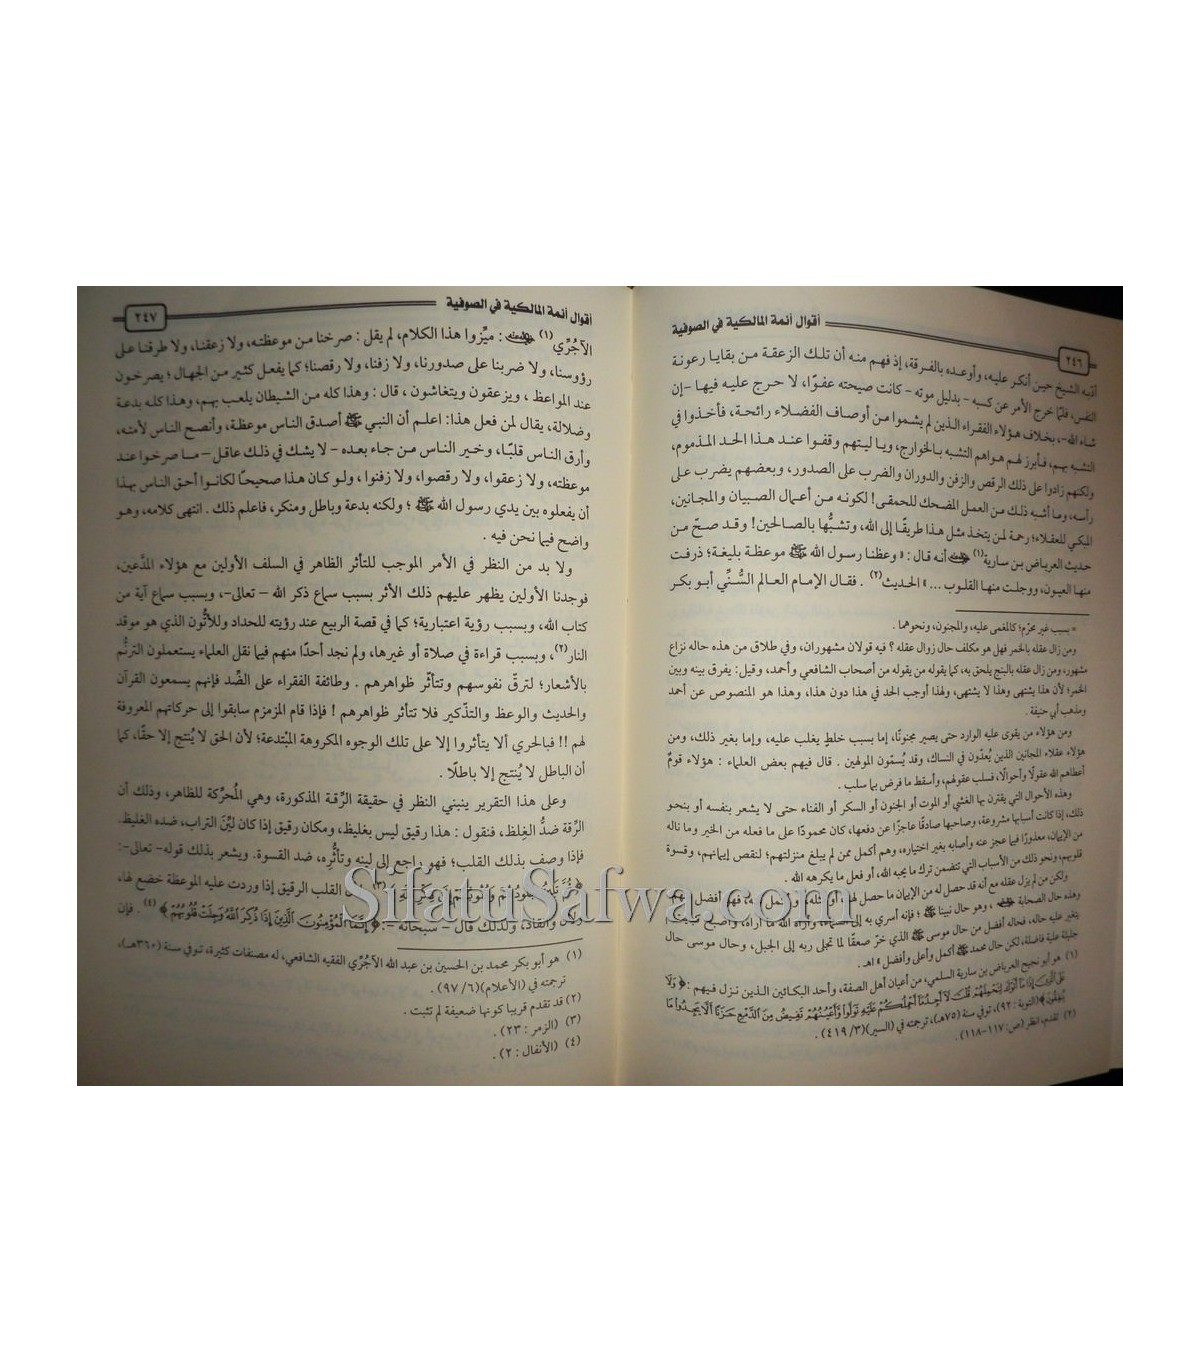 أقوال أئمة المالكية في الصوفية
٢٤٦
أدّبه الشيخ حين أنكر عليه، وأوعده بالفرقة، إذ فهم منه أن تلك الزعقة من بقايا رعونة
النفس، فلمّا خرج الأمر عن كسبه – بدليل موته – كانت صيحته عفوًا، لا حرج عليه فيها –إن
شاء الله–، بخلاف هؤلاء الفقراء الذين لم يشموا من أوصاف الفضلاء رائحة، فأخذوا في
التشبه بهم، فأبرز لهم هواهم التشبه بالخوارج، ويا ليتهم وقفوا عند هذا الحد المذموم،
ولكنهم زادوا على ذلك الرقص والزفن والدوران والضرب على الصدور، وبعضهم يضرب على
رأسه، وما أشبه ذلك من العمل المضحك للحمقى! لكونه من أعمال الصبيان والمجانين،
المبكي للعقلاء؛ رحمة لمن يتخذ مثل هذا طريقًا إلى الله، وتشبُّها بالصالحين! وقد صحّ من
حديث العرباض بن سارية(١) أنه قال : « وعظنا رسول الله ﷺ موعظة بليغة؛ ذرفت
منها العيون، ووجلت منها القلوب ... » الحديث(٢) . فقال الإمام العالم السُّنِّي أبو بكر
= بسبب غير محرّم؛ كالمغمى عليه، والمجنون، ونحوهما .
ومن زال عقله بالخمر فهل هو مكلف حال زوال عقله ؟ فيه قولان مشهوران، وفي طلاق من هذه حاله نزاع
مشهور، ومن زال عقله بالبنج يلحق به، كما يقوله من يقوله من أصحاب الشافعي وأحمد، وقيل: يفرق بينه وبين
الخمر؛ لأن هذا يشتهى وهذا لا يشتهى، ولهذا أوجب الحد في هذا دون هذا، وهذا هو المنصوص عن أحمد
ومذهب أبي حنيفة .
ومن هؤلاء من يقوى عليه الوارد حتى يصير مجنونًا، إما بسبب خلطٍ يغلب عليه، وإما بغير ذلك، ومن
هؤلاء عقلاء المجانين الذين يُعدّون في النساك، وقد يُسمّون المولهين . قال فيهم بعض العلماء : هؤلاء قومٌ
أعطاهم الله عقولًا وأحوالًا، فسلب عقولهم، وأسقط ما فرض بما سلب .
وهذه الأحوال التي يقترن بها الغشي أو الموت أو الجنون أو السكر أو الفناء حتى لا يشعر بنفسه أو بنحو
ذلك، إذا كانت أسبابها مشروعة، وصاحبها صادقًا عاجزًا عن دفعها، كان محمودًا على ما فعله من الخير وما ناله
من الإيمان، معذورًا فيما عجز عنه وأصابه بغير اختياره، وهم أكمل ممن لم يبلغ منزلتهم؛ لنقص إيمانهم، وقسوة
قلوبهم، ونحو ذلك من الأسباب التي تتضمن ترك ما يحبه الله، أو فعل ما يكرهه الله .
ولكن من لم يزل عقله مع أنه قد حصل له من الإيمان ما حصل لهم، أو مثله، أو أكمل منه، فهو أفضل منهم.
وهذه حال الصحابة، وهو حال نبينا ﷺ ؛ فإنه أسري به إلى السماء، وأراه الله ما أراه، وأصبح
يتغير عليه حاله، فحاله أفضل من حال موسى الذي خرّ صعقًا لما تجلى ربه إلى الجبل، وحال موسى حال
جليلة علية فاضلة، لكن حال محمد ﷺ أكمل وأعلى وأفضل » اهـ.
(١) هو أبو نجيح العرباض بن سارية السلمي، من أعيان أهل الصفة، وأحد البكائين الذين نزل فيهم : ﴿ وَلَا
عَلَى الَّذِينَ إِذَا مَا أَتَوْكَ لِتَحْمِلَهُمْ قُلْتَ لَا أَجِدُ مَا أَحْمِلُكُمْ عَلَيْهِ تَوَلَّوا وَّأَعْيُنُهُمْ تَفِيضُ مِنَ الدَّمْعِ حَزَنًا أَلَّا يَجِدُوا مَا
يُنفِقُونَ﴾(التوبة : ٩٢)، توفي سنة (٧٥هـ)، ترجمته في (السير)(٣/ ٤١٩) .
(٢) تقدم، انظر (ص: ١١٧-١١٨) .
أقوال أئمة المالكية في الصوفية
٢٤٧
الآجُرِّي(١) : ميِّزوا هذا الكلام، لم يقل : صرخنا من موعظته، ولا زعقنا، ولا طرقنا على
رؤوسنا، ولا ضربنا على صدورنا، ولا زفنا، ولا رقصنا؛ كما يفعل كثير من الجهال؛ يصرخون
عند المواعظ ، ويزعقون ويتغاشون ، قال : وهذا كله من الشيطان يلعب بهم، وهذا كله بدعة
وضلالة، يقال لمن فعل هذا: اعلم أن النبي ﷺ أصدق الناس موعظة، وأنصح الناس لأمته،
وأرق الناس قلبًا، وخير الناس من جاء بعده – لا يشك في ذلك عاقل – ما صرخوا عند
موعظته، ولا زعقوا، ولا رقصوا، ولا زفنوا ، ولو كان هذا صحيحًا لكانوا أحق الناس بهذا
أن يفعلوه بين يدي رسول الله ﷺ ؛ ولكنه بدعة وباطل ومنكر، فاعلم ذلك . انتهى كلامه، وهو
واضح فيما نحن فيه .
ولا بد من النظر في الأمر الموجب للتأثر الظاهر في السلف الأولين مع هؤلاء المدَّعين،
فوجدنا الأولين يظهر عليهم ذلك الأثر بسبب سماع ذكر الله – تعالى–، وبسبب سماع آية من
كتاب الله، وبسبب رؤية اعتبارية؛ كما في قصة الربيع عند رؤيته للحداد وللأتُّون الذي هو موقد
النار(٢)، وبسبب قراءة في صلاة أو غيرها، ولم نجد أحدًا منهم فيما نقل العلماء يستعملون الترنُّم
بالأشعار؛ لترقّ نفوسهم وتتأثّر ظواهرهم . وطائفة الفقراء على الضِّد فإنهم يسمعون القرآن
والحديث والوعظ والتذّكير فلا تتأثر ظواهرهم ! فإذا قام المزمزم سابقوا إلى حركاتهم المعروفة
لهم !! فبالحري ألا يتأثروا إلا على تلك الوجوه المكروهة المبْتدعة؛ لأن الحق لا يُنتج إلا حقًا، كما
أن الباطل لا يُنتج إلا باطلًا .
وعلى هذا التقرير ينبني النظر في حقيقة الرِّقة المذكورة، وهي المُحرِّكة للظاهر، وذلك أن
الرِّقة ضدُّ الغِلظ، فنقول : هذا رقيق ليس بغليظ، ومكان رقيق إذا كان ليِّن التراب، ضده الغليظ.
فإذا وصف بذلك القلب؛ فهو راجع إلى لينه وتأثُّره، ضد القسوة. ويشعر بذلك قوله– تعالى–:
﴿ثُمَّ تَلِينُ جُلُودُهُمْ وَقُلُوبُهُمْ إِلَى ذِكْرِ اللَّهِ﴾(٣) القلب الرقيق إذا وردت عليه الموعظة خضع لها،
ولان وانقاد، ولذلك قال – سبحانه –: ﴿إِنَّمَا الْمُؤْمِنُونَ الَّذِينَ إِذَا ذُكِرَ اللَّهُ وَجِلَتْ قُلُوبُهُمْ﴾(٤) . فإن
(١) هو أبو بكر محمد بن الحسين بن عبد الله الآجُرِّي الفقيه الشافعي، له مصنفات كثيرة، توفي سنة (٣٦٠هـ)،
ترجمته في (الأعلام)(٦/ ٩٧) .
(٢) قد تقدم قريبا كونها ضعيفة لم تثبت .
(٣) (الزمر : ٢٣) .
(٤) (الأنفال : ٢) .
SifatuSafwa.com